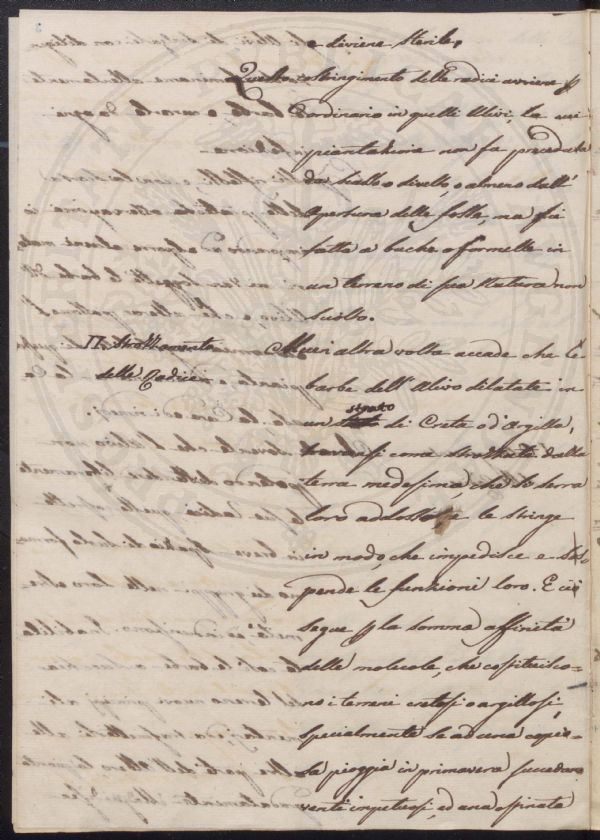 e diviene sterile.
Questo costringimento delle radici avviene p
ordinario in quelli Ulivi, la cui
piantazione non fu preceduta
da scasso o divelto, o almeno dall'
apertura delle fosse, ma fu
fatta a buche o formelle in
un terreno di sua natura non
sciolto.
II. Strozzamento
delle Radici
Altra volta accade che le
barbe dell'Ulivo dilatate in
un strato di Creta o d'Argilla,
trovansi come strozzate dalla
terra medesima, che si serra
loro addosso e le stringe
in modo, che impedisce e so
pende le funzioni loro. E ciò
segue p la somma affinità
delle molecole, che costituisco-
no i terreni cretosi o argillosi,
specialmente se ad una copio-
sa pioggia in primavera succedano
venti impetuosi, ed una ostinata